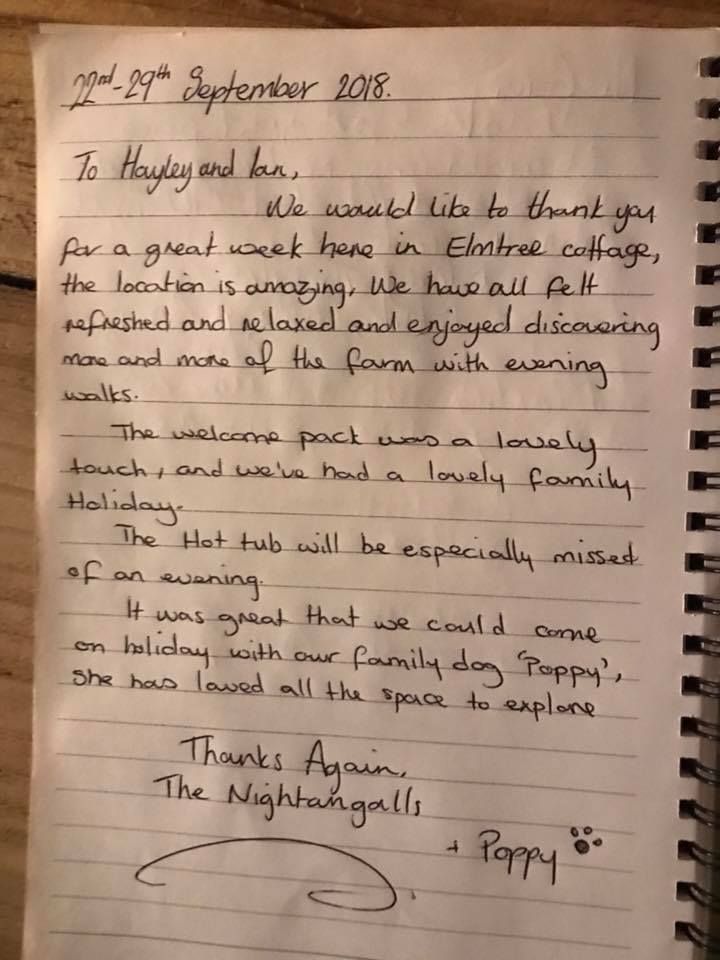 22nd-29th September 2018.
To Hayley and Ian,
We would like to thank you
for a great week here in Elmtree cottage,
the location is amazing, We have all felt
refreshed and relaxed and enjoyed discovering
more and more of the farm with evening
walks.
The welcome pack was a lovely
touch, and we've had a lovely family
Holiday.
The Hot tub will be especially missed
of an evening.
It was great that we could come
on holiday with our family dog 'Poppy',
she has loved all the space to explore
Thanks Again,
The Nightangalls
+ Poppy